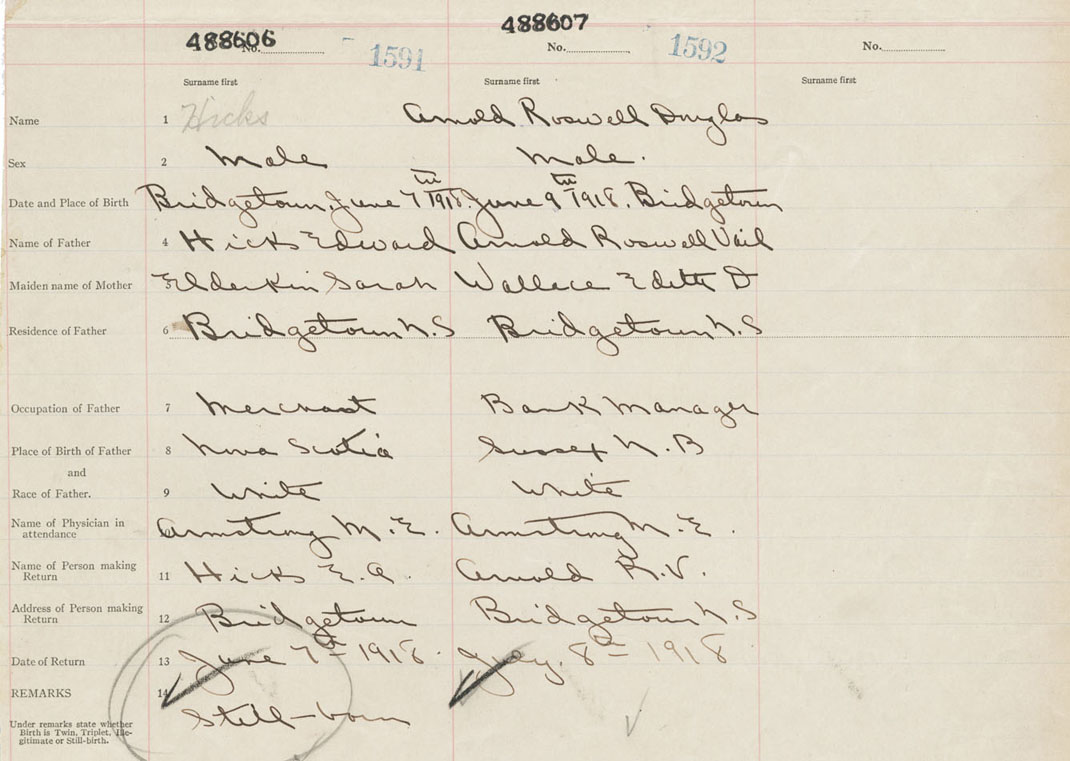 488606 No. 1591 488607 No. 1592 No.
Surname first Surname first Surname first
Name 1 Hicks Arnold Roswell Douglas
Sex 2 Male Male.
Date and Place of Birth Bridgetown, June 7th 1918. June 9th 1918. Bridgetown
Name of Father 4 Hicks Edward Arnold Roswell Vail
Maiden name of Mother 5 Elderkin Sarah Wallace Edith D
Residence of Father 6 Bridgetown N.S Bridgetown N.S
Occupation of Father 7 Merchant Bank Manager
Place of Birth of Father 8 Nova Scotia Sussex N.B
and
Race of Father. 9 White White
Name of Physician in
attendance Armstrong M.E. Armstrong M.E.
Name of Person making
Return 11 Hicks E.A. Arnold R.V.
Address of Person making
Return 12 Bridgetown Bridgetown N.S
Date of Return 13 June 7th 1918. July, 8th 1918
REMARKS 14
Still-born
Under remarks state whether
Birth is Twin, Triplet, Ille-
gitimate or Still-birth.